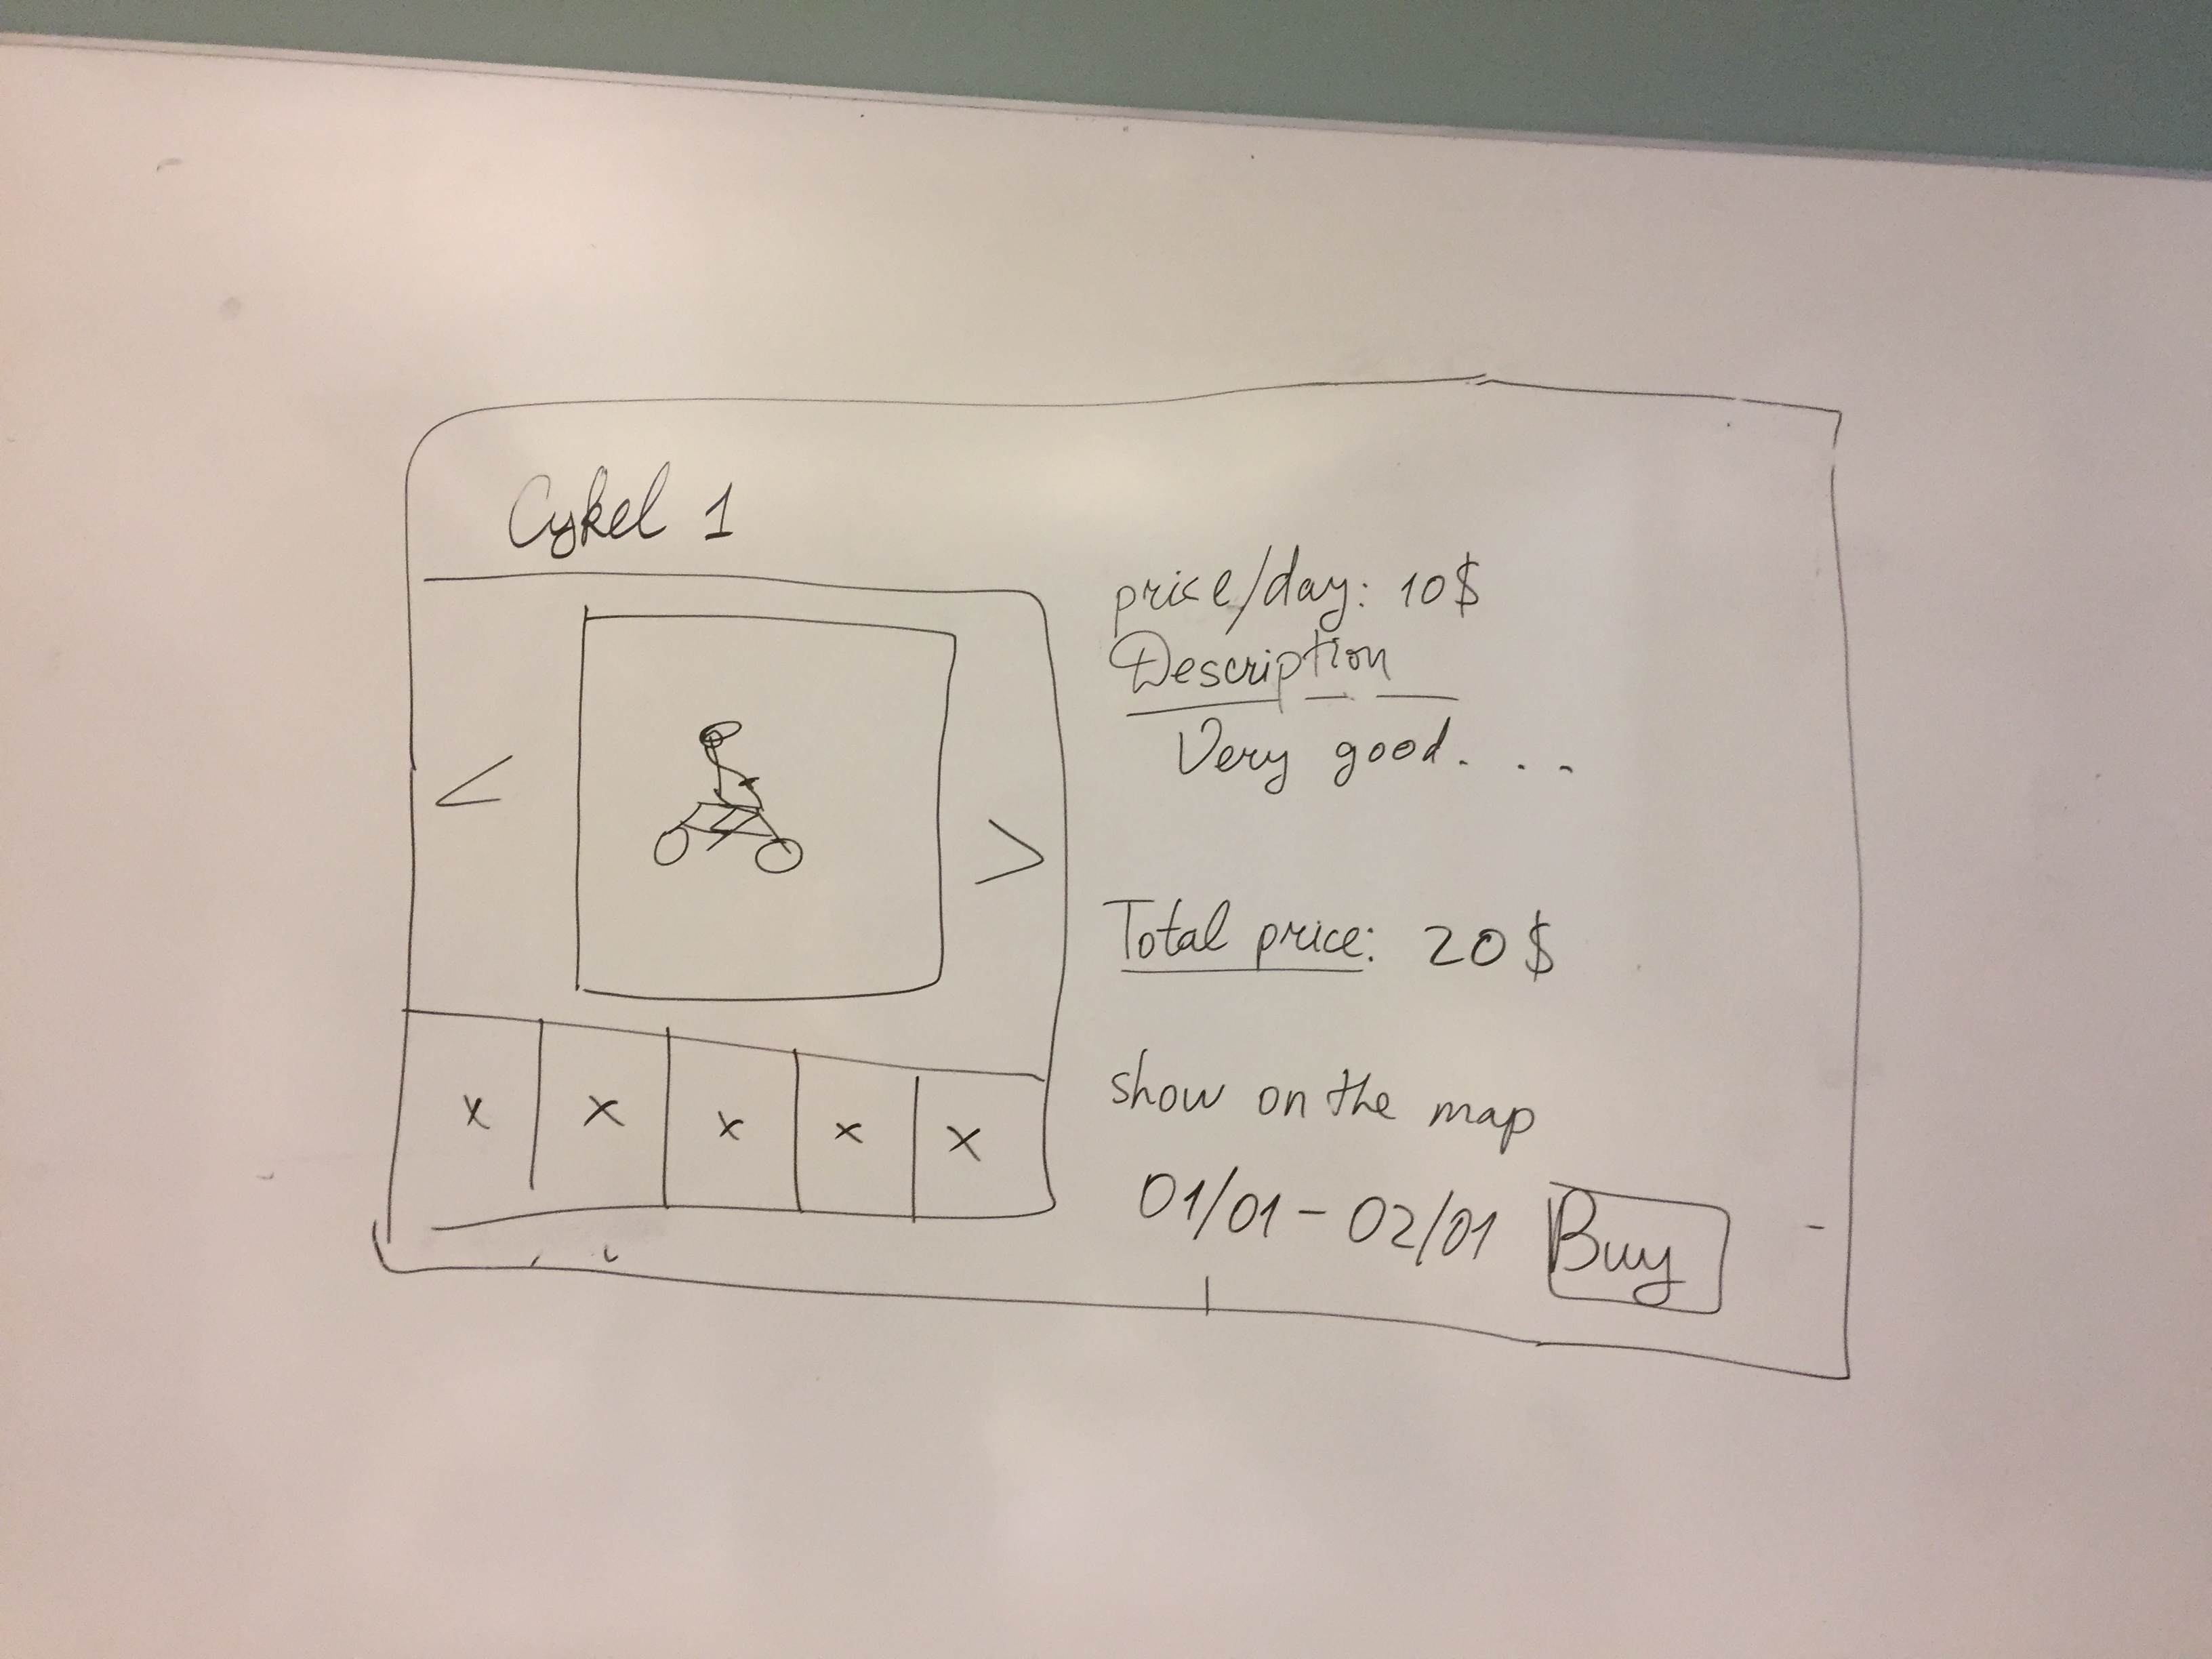 Cykel 1
price/day: 10$
Description
Very good. . . .
Total price: 20$
show on the map
01/01 - 02/01
Buy
<
>
x x x x x